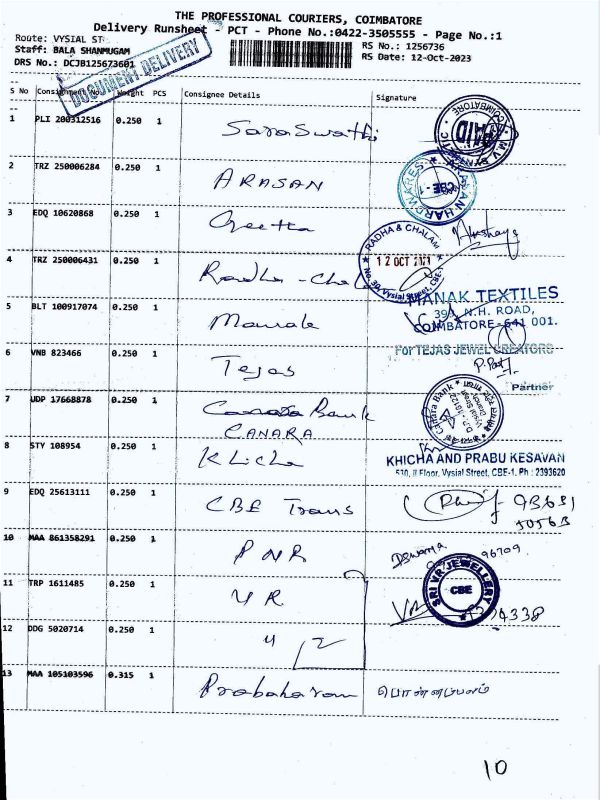 THE PROFESSIONAL COURIERS, COIMBATORE
Delivery Runsheet - PCT - Phone No.:0422-3505555 - Page No.:1
Route: VYSIAL ST
RS No.: 1256736
Staff: BALA SHANMUGAM
RS Date: 12-Oct-2023
DRS No.: DCJB125673601
DOCUMENT DELIVERY
S No Consignment No Weight PCS Consignee Details Signature
1 PLI 200312516 0.250 1 Saraswathi
COIMBATORE PAID
2 TRZ 250006284 0.250 1 ARASAN
ARASAN HARDWARES CBE-1
3 EDQ 10620868 0.250 1 Geetha Akshaya
4 TRZ 250006431 0.250 1 Radha - Chala
RADHA & CHALAM
12 OCT
Vysial Street, CBE-1
5 BLT 100917074 0.250 1
MANAK TEXTILES
399, N.H. ROAD,
COIMBATORE-641 001.
6 VNB 823466 0.250 1 Tejas
For TEJAS JEWEL CREATORS
Partner
7 UDP 17668878 0.250 1 Canara Bank
CANARA
Canara Bank
Vysial Street
8 STY 108954 0.250 1 Khicha
KHICHA AND PRABU KESAVAN
530, II Floor, Vysial Street, CBE-1. Ph : 2393620
9 EDQ 25613111 0.250 1 CBE Trans
93631
50563
10 MAA 861358291 0.250 1 PNR
96709
11 TRP 1611485 0.250 1 VR
SRI VR JEWELLERY CBE
74338
12 DDG 5020714 0.250 1 "
13 MAA 105103596 0.315 1 Prabaharan பொன்னம்பலம்
10